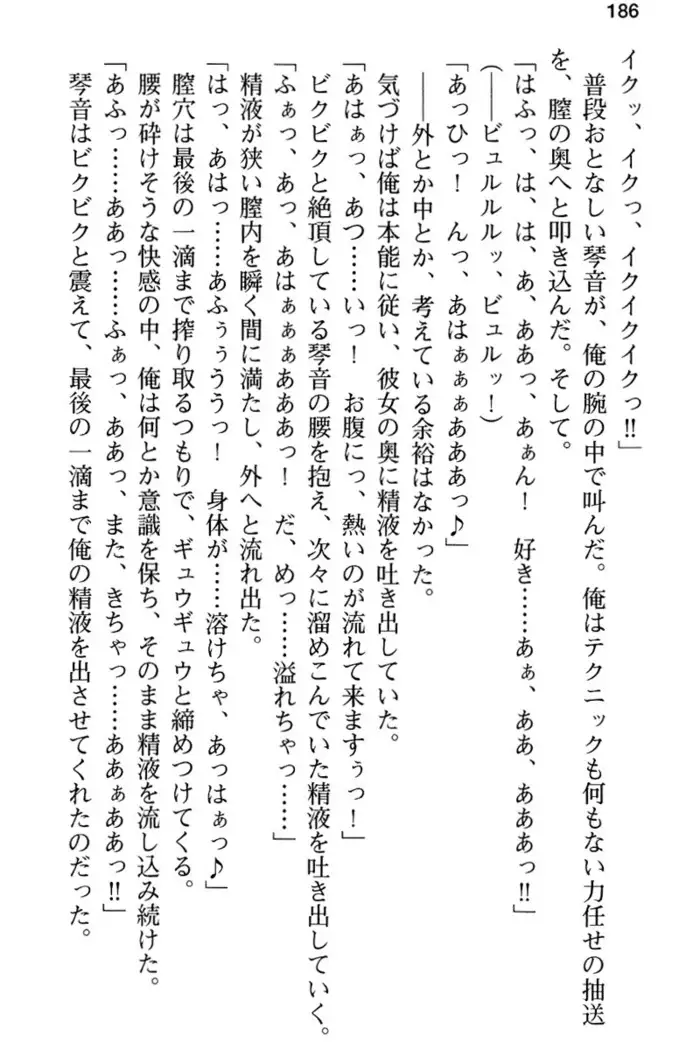 186
イクッ、イクっ、イクイクイクっ‼」
　普段おとなしい琴音が、俺の腕の中で叫んだ。俺はテクニックも何もない力任せの抽送
を、膣の奥へと叩き込んだ。そして。
「はふっ、は、は、あ、ああっ、あぁん！　好き……あぁ、ああ、あああっ‼」
（――ビュルルルッ、ビュルッ！）
「あっひっ！　んっ、あはぁぁぁあああっ♪」
　――外とか中とか、考えている余裕はなかった。
　気づけば俺は本能に従い、彼女の奥に精液を吐き出していた。
「あはぁっ、あつ……いっ！　お腹にっ、熱いのが流れて来ますぅっ！」
　ビクビクと絶頂している琴音の腰を抱え、次々に溜めこんでいた精液を吐き出していく。
「ふぁっ、あっ、あはぁぁぁあああっ！　だ、めっ……溢れちゃっ……」
　精液が狭い膣内を瞬く間に満たし、外へと流れ出た。
「はっ、あはっ……あふぅぅううっ！　身体が……溶けちゃ、あっはぁっ♪」
　膣穴は最後の一滴まで搾り取るつもりで、ギュウギュウと締めつけてくる。
　腰が砕けそうな快感の中、俺は何とか意識を保ち、そのまま精液を流し込み続けた。
「あふっ……ああっ……ふぁっ、ああっ、また、きちゃっ……ああぁああっ‼」
　琴音はビクビクと震えて、最後の一滴まで俺の精液を出させてくれたのだった。